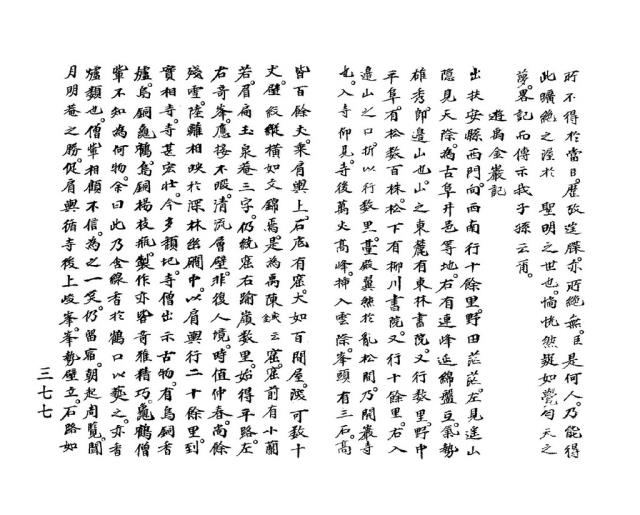 所不得於當日。歷攷逞牒。亦所絶無。臣是何人。乃能得
此曠絶之渥於　聖明之世也。惝恍然疑如夢勻天之
夢。畧記而傳示我子孫云爾。
遊禹金巖記
出扶安縣西門。向西南行十餘里。野田茫茫。左見遙山
隱見天際。為古阜井邑等地。右有連峰延綿盤亘。氣勢
雄秀。即邉山也。山之東麓有東林書院。又行數里。野中
平阜有松數百株。松下有柳川書院。又行十餘里。右入
邉山之口。折以行數里。臺殿翼然於亂松間。乃開巖寺
也。入寺仰見寺後萬丈高峰揷入雲際。峯頭有三石。高
皆百餘丈。乘肩輿上。石底有窟。大如百間屋。陵可數十
丈。壁紋縱橫如文錦焉。是為禹陳缺云窟。窟前有小蘭
若。眉扁玉泉菴三字。仍繞窟右踰嶺數里。始得平路。左
右奇峯應接不暇。清流層壁。非復人境。時值仲春。尚餘
殘雪。陸離相映於深林幽磵中。以肩輿行二十餘里。到
實相寺。寺甚宏壯。今多頹圮。寺僧出示古物。有烏銅香
爐。烏銅龜鶴。烏銅楊枝瓶。製作亦皆奇雅精巧。龜鶴僧
輩不知為何物。余曰此乃含線香於鶴口以爇之。亦香
爐類也。僧輩相顧不信。為之一笑。仍留宿。朝起周覽。聞
月明菴之勝。促肩輿循寺後上峻峯。峯勢壁立。石路如
三七七